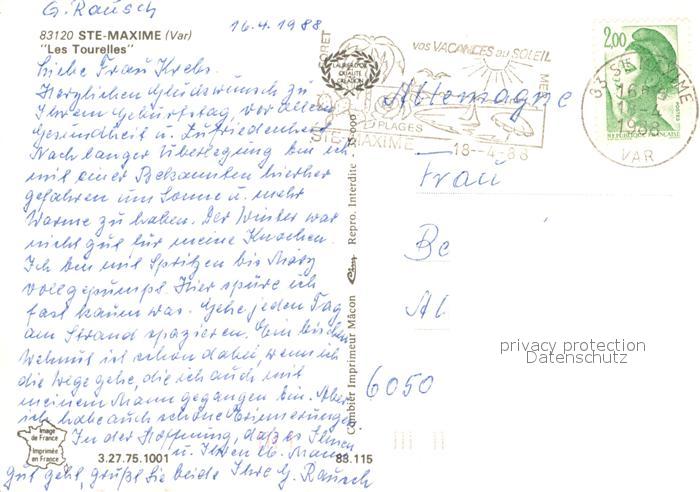 G. Rausch
16.4.1988
83120 STE-MAXIME (Var)
"Les Tourelles"
Liebe Frau Krebs.
Herzlichen Glückwunsch zu
Ihrem Geburtstag, vor allem
Gesundheit u. Zufriedenheit
Nach langer Überlegung bin ich
mit einer Bekannten hierher
gefahren um Sonne u. mehr
Wärme zu haben. Der Winter war
nicht gut für meine Knochen.
Ich bin mit Spritzen bis März
vollgepumpt. Hier spüre ich
fast kaum was. Gehe jeden Tag
am Strand spazieren. Ein bischen
Wehmut ist schon dabei, wenn ich
die Wege gehe, die ich auch mit
meinem Mann gegangen bin. Aber
ich habe auch schöne Erinnerungen
In der Hoffnung, daß es Ihnen
u. Ihren lb. Mann
gut geht, grüßt Sie beide Ihre G. Rausch
Image
de France
Imprimée
en France
3.27.75.1001
83.115
Combier Imprimeur Mâcon
Repro. Interdite - 35-000
LABEL D'OR
QUALITÉ
CREATION
FORET
MER
vos VACANCES au SOLEIL
PLAGES
STE MAXIME
18-4-88
2,00
POSTES
REPUBLIQUE FRANÇAISE
83 STE MAXIME
1988
VAR
Allemagne
Frau
Be
Al
6050
privacy protection
Datenschutz